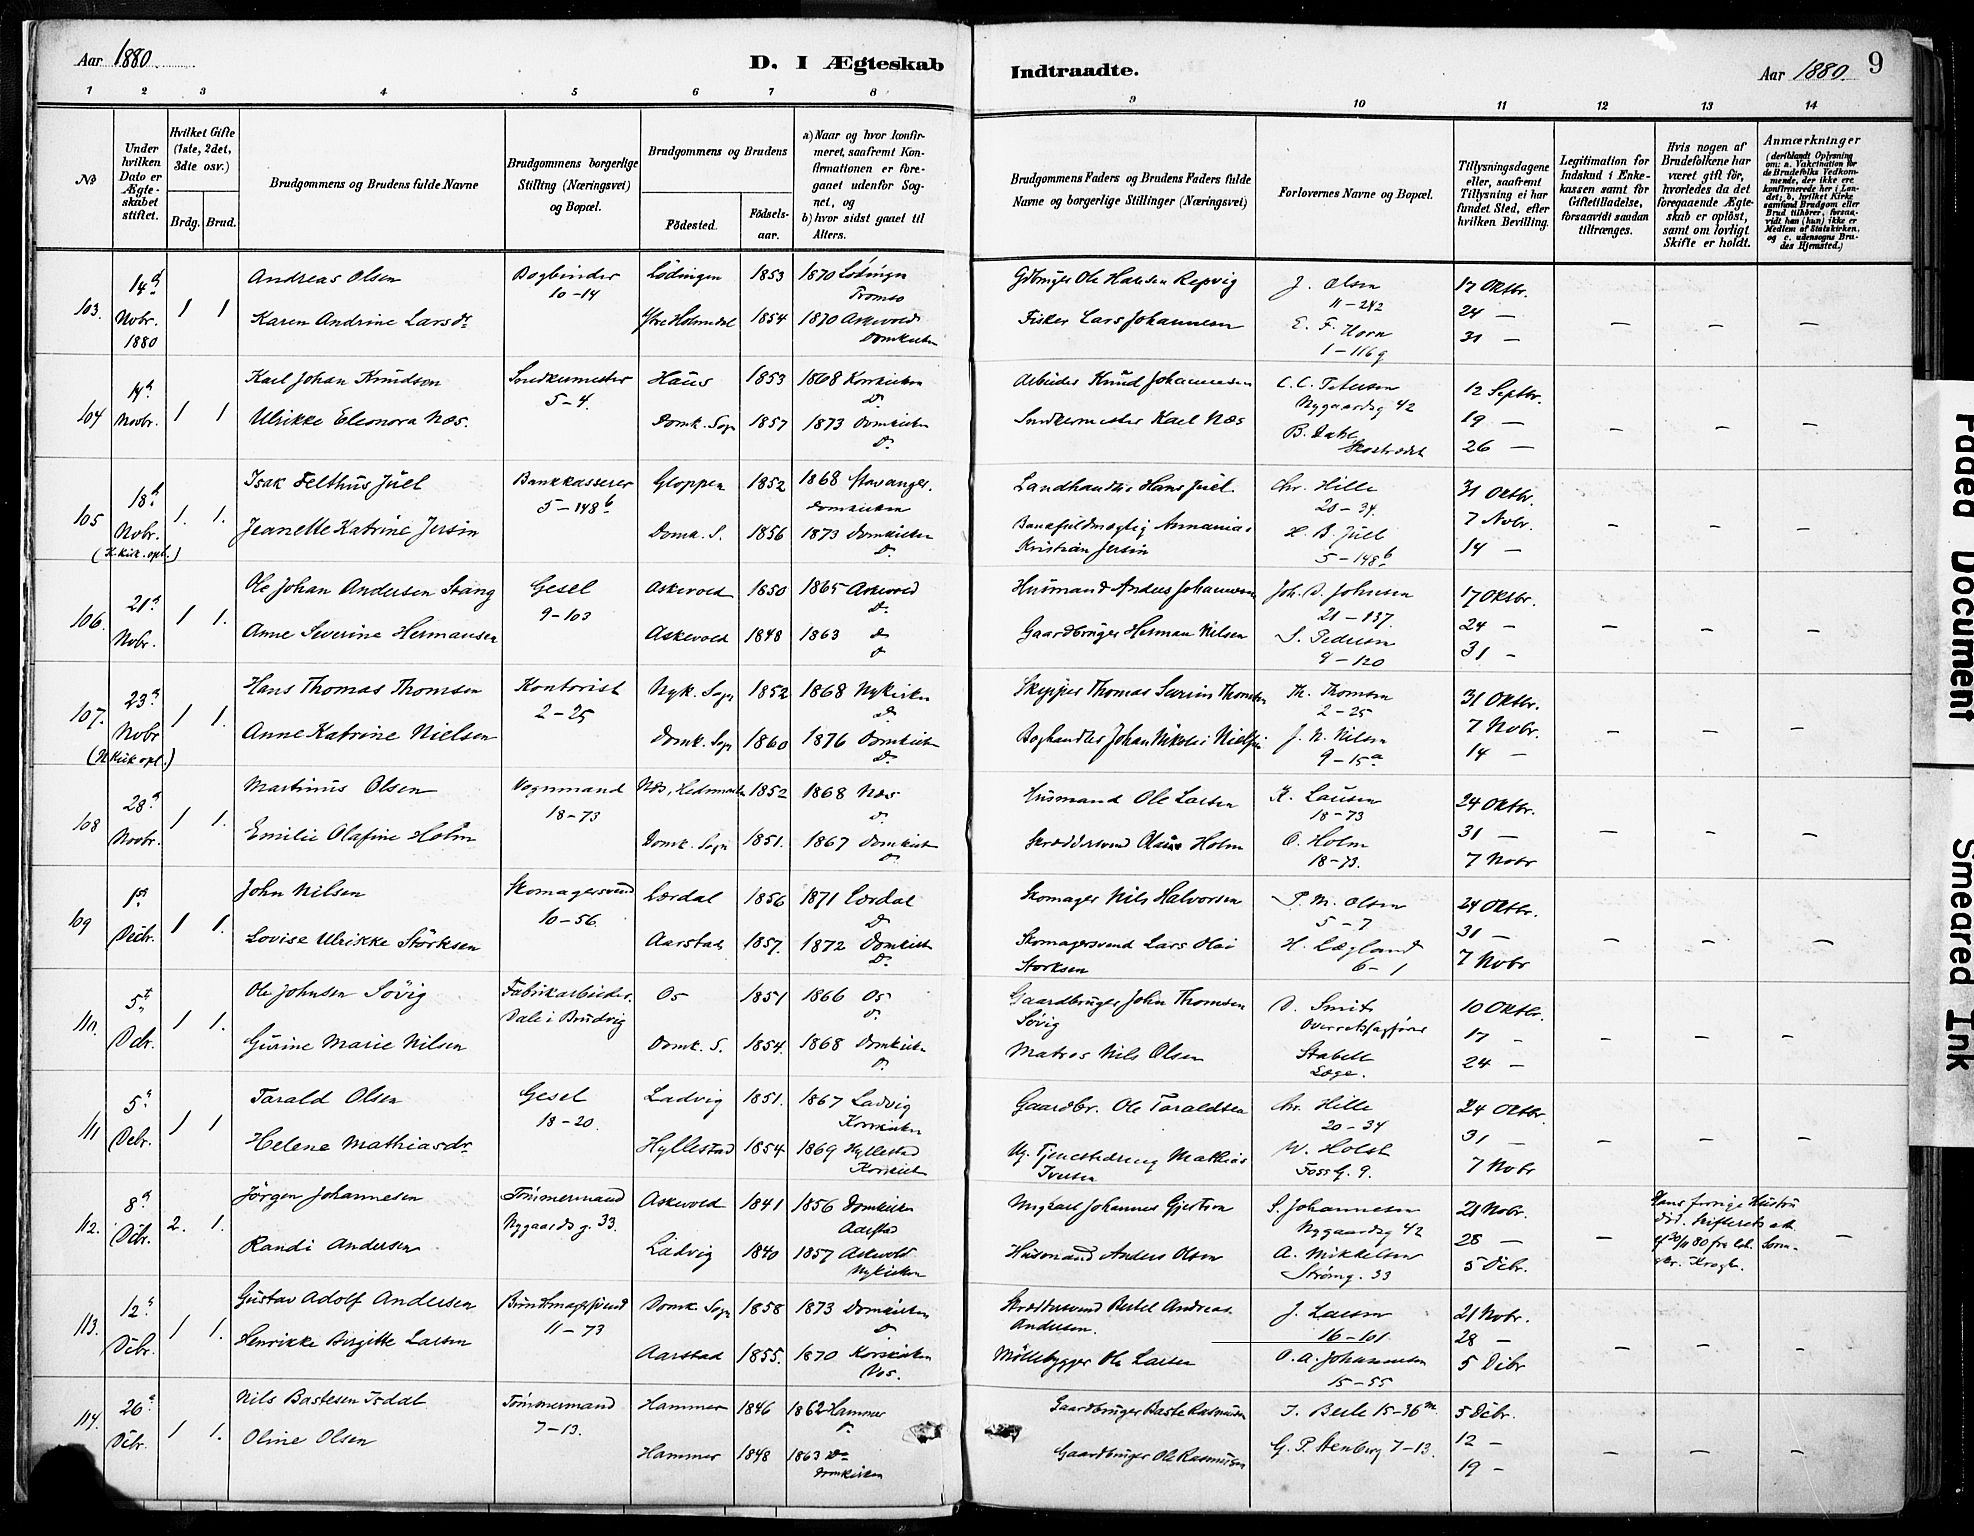 Aar 1880.
D. I Ægteskab
Indtraadte.
Aar 1880.
9
1 2 3 4 5 6 7 8 9 10 11 12 13 14
No
Under hvilken Dato er Ægte-skabet stiftet.
Hvilket Gifte (1ste, 2det, 3die osv.)
Brdg. Brud.
Brudgommens og Brudens fulde Navne
Brudgommens borgerlige Stilling (Næringsvei) og Bopæl.
Brudgommens og Brudens
Fødested.
Fødsels-aar.
a) Naar og hvor konfir-meret, saafremt Kon-firmationen er fore-gaaet udenfor Sog-net, og
b) hvor sidst gaaet til Alters.
Brudgommens Faders og Brudens Faders fulde Navne og borgerlige Stillinger (Næringsvei)
Forlovernes Navne og Bopæl.
Tillysningsdagene eller, saafremt Tillysning ei har fundet Sted, efter hvilken Bevilling.
Legitimation for Indskud i Enke-kassen samt for Giftetilladelse, forsaavidt saadan tiltrænges.
Hvis nogen af Brudefolkene har været gift før, hvorledes da det foregaaende Ægte-skab er opløst, samt om lovligt Skifte er holdt.
Anmærkninger
(deriblandt Oplysning om: a. Vakcination for de Brudefolks Vedkom-mende, der ikke ere konfirmerede her i Lan-det; b. hvilket Kirke-samfund Brudgom eller Brud tilhører, forsaa-vidt han (hun) ikke er Medlem af Statskirken, og c. udensogns Bru-des Hjemsted.)
103. 14d Novbr. 1880 1 1
Andreas Olsen Bogbinder 10-14 Lødingen 1853 1870 Lødingen Tromsø Gdbruger Ole Hansen Repvig J. Olsen 11-242 17 Oktbr.
Karen Andrine Larsdr Ytre Holmedal 1854 1870 Askevold Domkirken Fisker Lars Johannesen E. F. Horn 1-116g 24 — 31 —
104 14d Novbr. 1 1
Karl Johan Knudson Snedkermester 5-4. Haus 1853 1868 Korskirken Do Arbeider Knud Johannesen C. C. Petersen Nygaardsg 42 12 Septbr.
Ulrikke Eleonora Næs. Domk. Sogn 1857 1873 Domkirken Do Snedkermester Karl Næs B. Dahl Skostrædet 19 — 26 —
105 18d Novbr. (H. Kirk. opl.) 1. 1.
Isak Felthus Juel Bankkasserer 5-148b Gloppen 1852 1868 Stavanger. Domkirken Landhandler Hans Juel Chr. Hille 20-34. 31 Oktbr.
Jeanette Katrine Jersin Domk. S. 1856 1873 Domkirken Do Bankfuldmægtig Annanias Kristian Jersin H. B. Juel 5-148b 7 Novbr. 14 —
106. 21d Novbr. 1 1.
Ole Johan Andersen Stang Gesel 9-103 Askevold 1850 1865 Askevold Do Husmand Anders Johannesen Joh. D. Johnsen 21-137. 17 Oktbr.
Anne Severine Hermansen Askevold 1848 1863 do Do Gaardbruger Herman Nilsen S. Pedersen 9-120 24 — 31 —
107. 23d Novbr (N. Kirk opl.) 1 1.
Hans Thomas Thomsen Kontorist 2-25 Nyk. Sogn 1852 1868 Nykirken Do Skipper Thomas Severin Thomsen Th. Thomsen 2-25 31 Oktbr.
Anne Katrine Nielsen Domk. Sogn 1860 1876 Domkirken Do Boghandler Johan Nikolai Nielsen J. N. Nilsen 9-15a 7 Novbr. 14 —
108 28d Novbr. 1 1.
Martinus Olsen Vognmand 18-73 Næs, Hedemarken 1852 1868 Næs Do Husmand Ole Larsen K. Lausen 18-73 24 Oktbr.
Emilie Olafine Holm Domk. Sogn 1851. 1867 Domkirken Do Skræddersvend Olaus Holm O. Holm 18-73. 31 — 7 Novbr
109 1st Decbr. 1 1.
John Nilsen Skomagersvend 10-56 Lærdal 1856 1871 Lærdal Do Skomager Nils Halvorsen P. M. Olsen 5-7 24 Oktbr.
Lovise Ulrikke Störksen Aarstad 1857. 1872 Domkirken Do Skomagersvend Lars Olai Storksen H. Lægland 6-1 31 — 7 Novbr
110. 5t Decbr. 1 1.
Ole Johnsen Søvig Fabrikarbeider. Dale i Bruvig Os 1851 1866 Os Do Gaardbruger John Thomsen Søvig D. Smith Overretssagfører 10 Oktbr.
Gurine Marie Nilsen Domk. S. 1854. 1868 Domkirken Do Matros Nils Olsen Stabell Læge. 17 - 24 —
111 5d Decbr. 1 1
Tarald Olsen Gesel 18-20. Ladvig 1851. 1867 Ladvig Korskirken Gaardbr. Ole Taraldsen Chr. Hille 20-34 24 Oktbr.
Helene Mathiasdr Hyllestad 1854 1869 Hyllestad Korskirken Ug. Tjenestedreng Mathias Iversen W. Holst Fossg. 9. 31 — 7 Novbr
112. 8d Decbr. 2. 1.
Jörgen Johannesen Tømmermand Nygaardsg. 33. Askevold 1841 1856 Domkirken Aarstad Ungkarl Johannes Gjertsen S. Johannesen Nygaardsg 42 21 Novbr. Hans forrige Hustru død. Skifteattest af 20/11 80 fra Lensm. Krogh.
Randi Andersen Ladvig 1840 1857 Askevold Nykirken Husmand Anders Olsen A. Mikkelsen Strømg. 33 28 — 5 Decbr.
113. 12d Decbr. 1 1.
Gustav Adolf Andersen Buntmagersvend 11-73 Domk. Sogn 1858 1873 Domkirken Do Skræddersvend Bertel Andreas Andersen. J. Larsen 16-101 21 Novbr.
Henrikke Birgitte Larsen Aarstad 1855. 1870 Korskirken Vos. Møllebygger Ole Larsen O. A. Johannesen 15-55 28 — 5 Decbr
114. 26d Decbr. 1 1.
Nils Bastesen Isdal Tømmermand 7-13. Hammer 1846 1862 Hammer Do Gaardbruger Baste Rasmusen I. Berle 15-36m 5 Decbr.
Oline Olsen Hammer 1848 1863 Do Domkirken Gaardbruger Ole Rasmusen G. P. Stenberg 7-13. 12 — 19 —
Faded Document
Smeared Ink